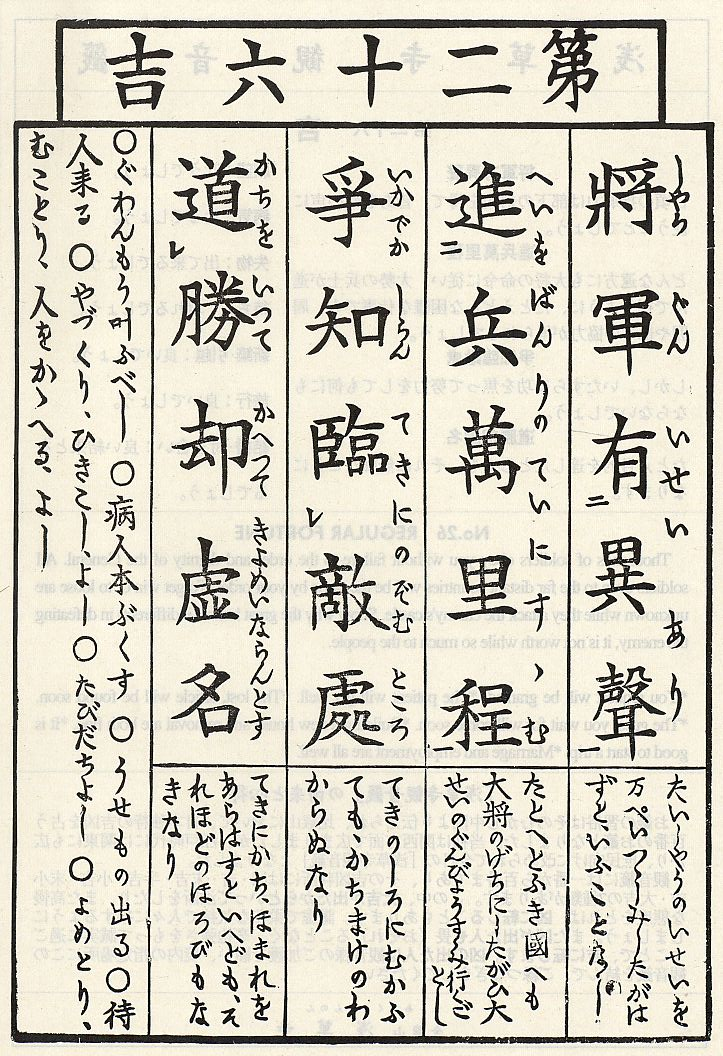 第二十六吉
將軍有異聲
しやうぐんいせいあり
たいしやうのいせいを
万ぺいつゝしみしたがは
ずといふことなし
進兵萬里程
へいをばんりのていにすゝむ
たとへとふき國へも
大將のげちにしたがひ大
せいのぐんびょうすゝみ行ごとし
爭知臨敵處
いかでかしらんてきにのぞむところ
てきのところにむかふ
てもかちまけのわ
からぬなり
道勝却虚名
かちをいつてかへつてきよめいならんとす
てきにかちほまれを
あらはすといへども、そ
れほどのほろびもな
きなり
○ぐわんもう叶ふべし ○病人本ぶくす ○うせもの出る○待
人来る ○やづくり、ひきこしよし ○たびだちよし ○よめとり、
むことり、人をかゝへる、よし